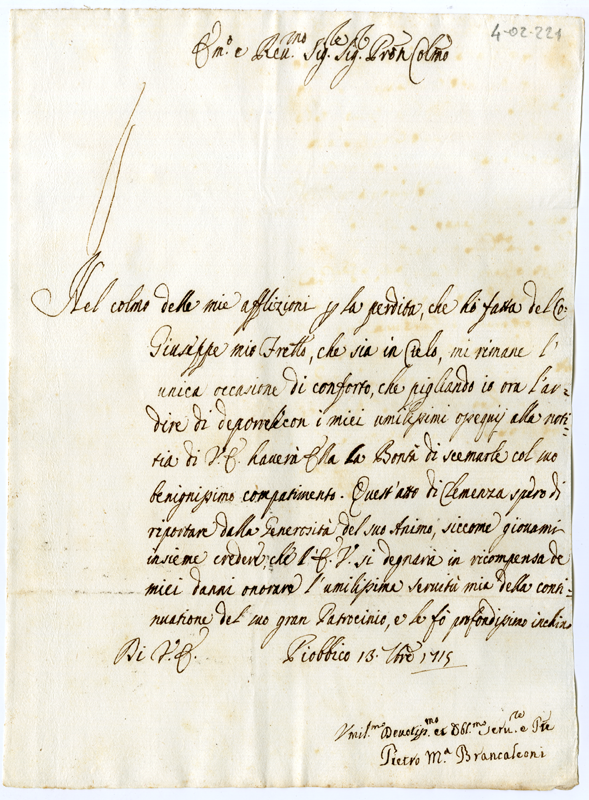 4-02-221
Em.o e Rev.mo Sig.re Sig.r Pron Colmo
Nel colmo delle mie afflizioni p la perdita, che hò fatta del Co:
Giuseppe mio Fretto, che sia in Cielo, mi rimane l'
unica occasione di conforto, che pigliando io ora l'ar=
dire di deporreli con i miei umilissimi ossequij alla noti=
tia di V.E. haverà Ella la Bontà di scemarle col suo
benignissimo compatimento. Quest'atto di Clemenza spero di
riportare dalla Generosità del suo Animo, siccome giovami
insieme credere, che l'E.V. si degnarà in ricompensa de
miei danni onorare l'umilissima servitù mia della conti=
nuatione del suo gran Patrocinio, e le fò profondissimo inchino
Di V.E. Piobbico 13. 7bre 1715
Vmil.mo Devotiss.mo et Obl.mo Seru.re e
Pietro M.a Brancaleoni